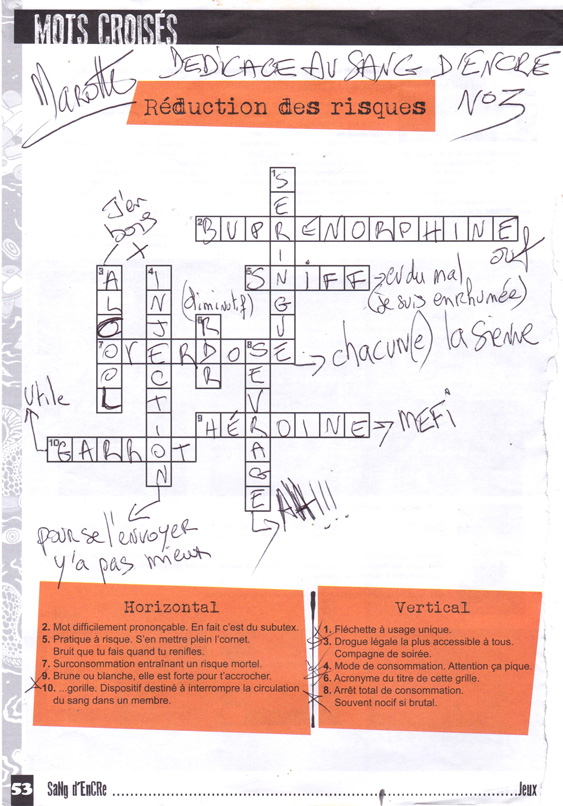 MOTS CROISÉS
Marotte
DEDICACE AU SANG D'ENCRE
N°3
Réduction des risques
J'en
bois
1 SERINGUE
2 BUPRENORPHINE
ouf
3 ALCOOL
4 INJECTION
5 SNIFF
eu du mal
(je suis enrhumée)
(diminutif)
6 RDR
7 OVERDOSE
chacun(e) la sienne
8 SEVRAGE
utile
9 HÉROINE
MEFI
10 GARROT
AHH!!!
pour se l'envoyer
y'a pas mieux
Horizontal
2. Mot difficilement prononçable. En fait c'est du subutex.
5. Pratique à risque. S'en mettre plein l'cornet.
Bruit que tu fais quand tu renifles.
7. Surconsommation entraînant un risque mortel.
9. Brune ou blanche, elle est forte pour t'accrocher.
10. ...gorille. Dispositif destiné à interrompre la circulation
du sang dans un membre.
Vertical
1. Fléchette à usage unique.
3. Drogue légale la plus accessible à tous.
Compagne de soirée.
4. Mode de consommation. Attention ça pique.
6. Acronyme du titre de cette grille.
8. Arrêt total de consommation.
Souvent nocif si brutal.
53 SaNg d'EnCRe Jeux